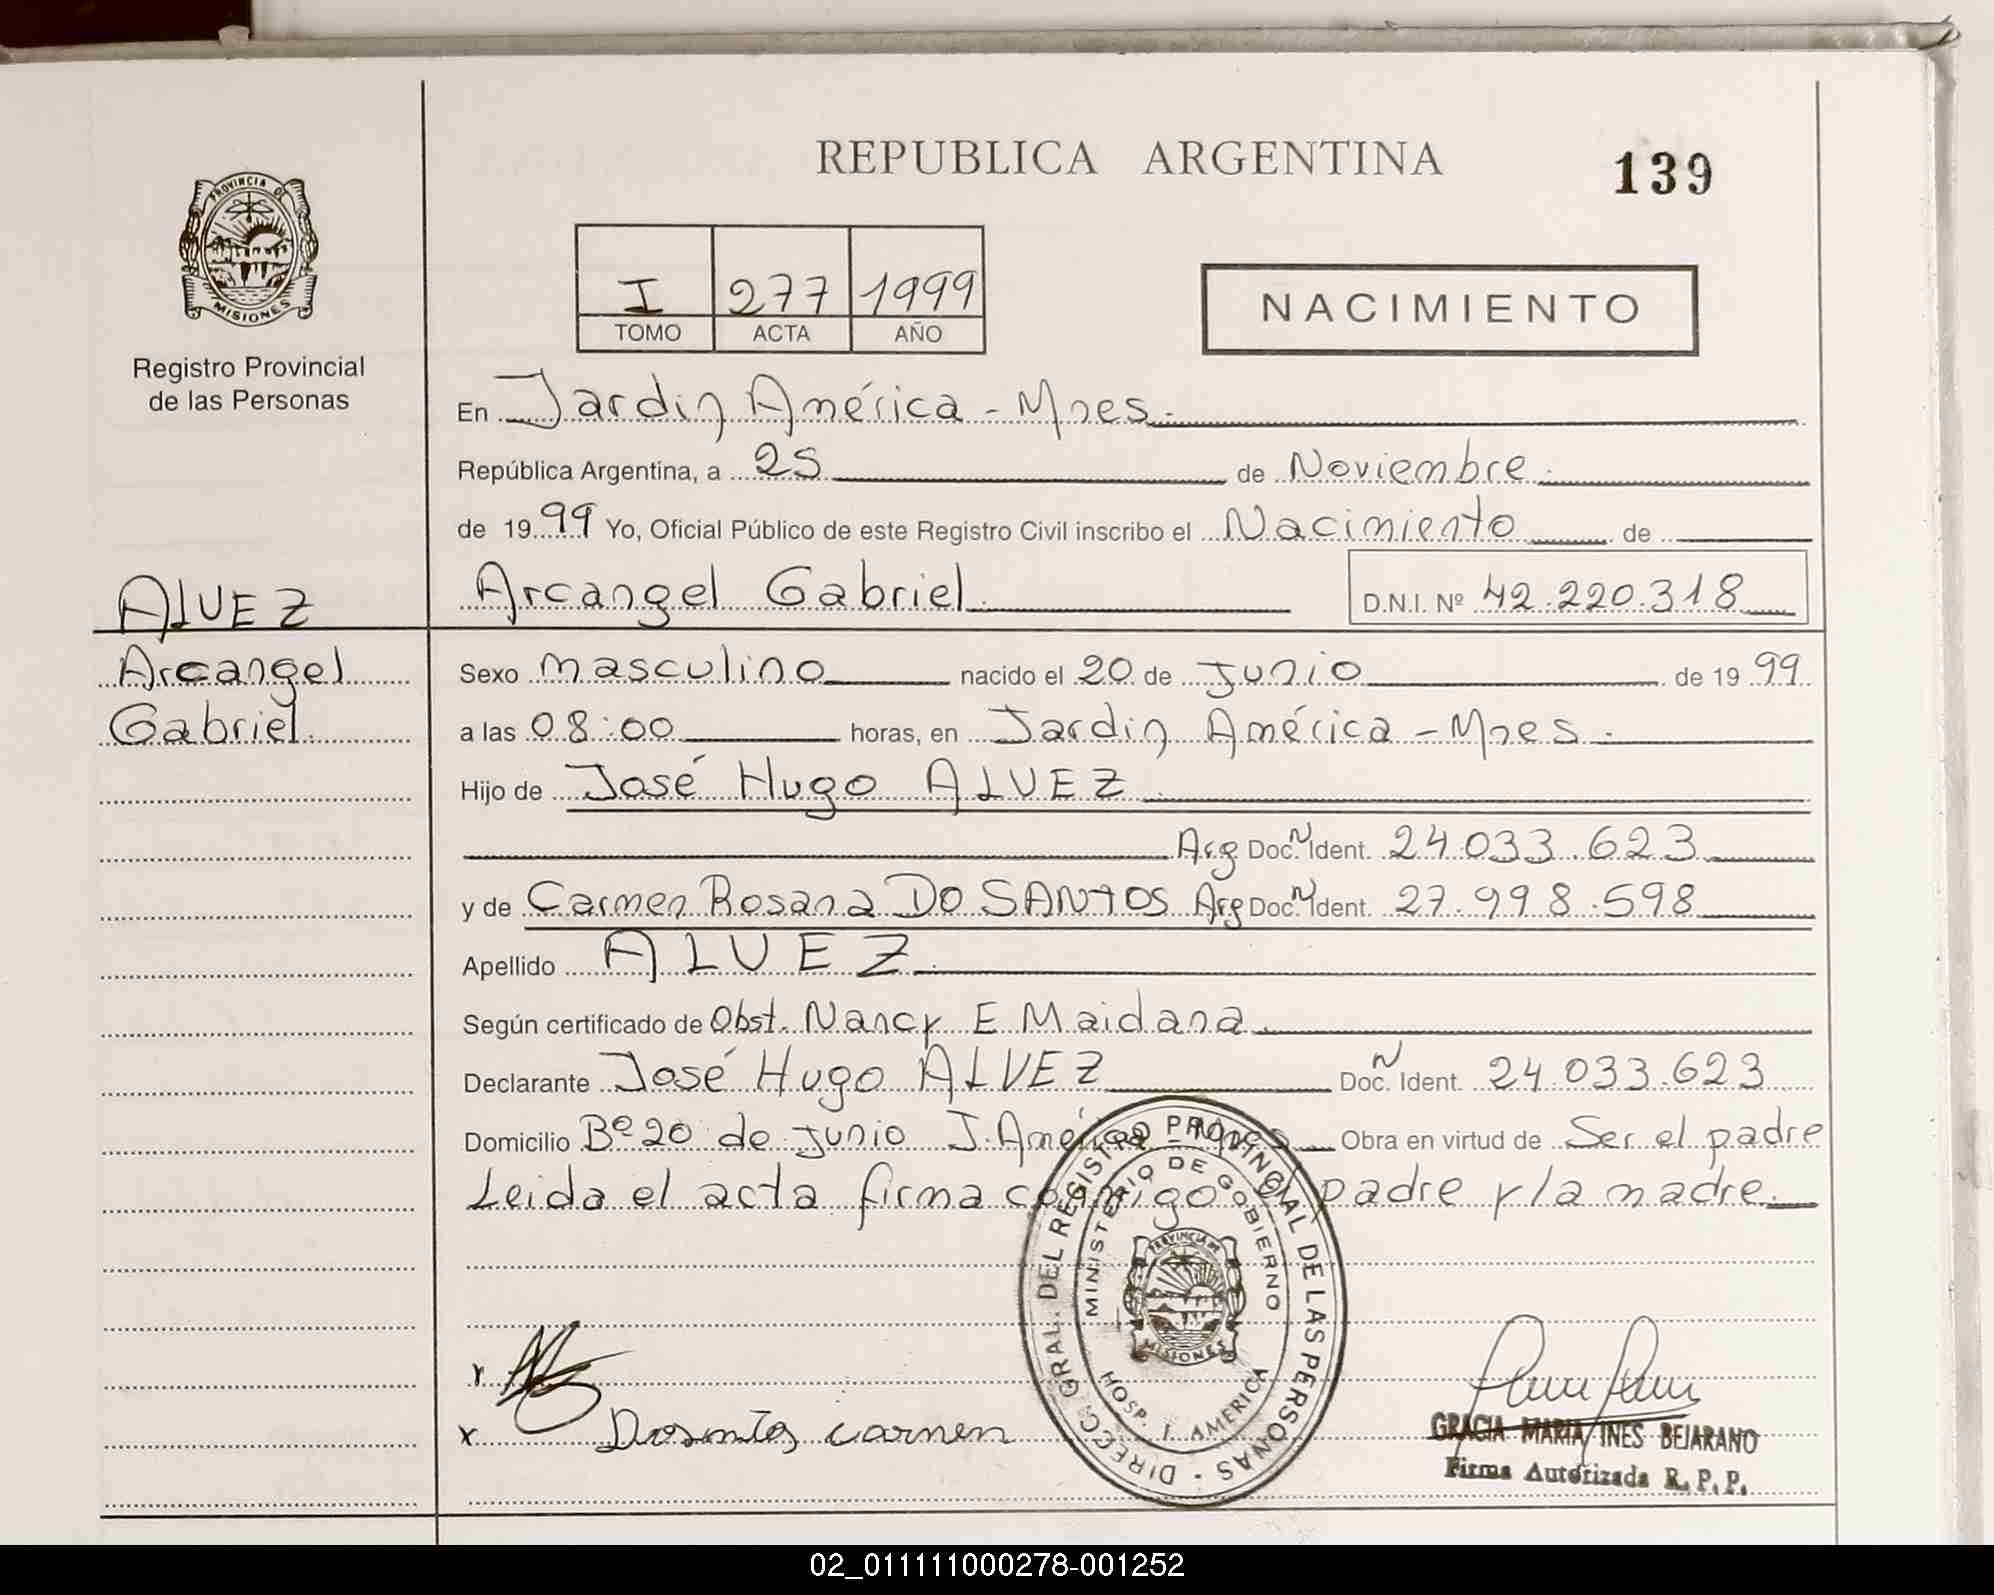 REPUBLICA ARGENTINA
139
PROVINCIA DE
MISIONES
Registro Provincial
de las Personas
I 277 1999
TOMO ACTA AÑO
NACIMIENTO
En Jardin América - Mnes.
República Argentina, a 25 de Noviembre.
de 1999 Yo, Oficial Público de este Registro Civil inscribo el Nacimiento de
ALVEZ
Arcangel Gabriel.
D.N.I. Nº 42.220.318
Arcangel
Gabriel.
Sexo masculino nacido el 20 de Junio de 1999
a las 08:00 horas, en Jardin América - Mnes.
Hijo de José Hugo ALVEZ
Arg Doc. Ñ Ident. 24.033.623
y de Carmen Rosana DO SANTOS Arg Doc. Ñ Ident. 27.998.598
Apellido ALVEZ.
Según certificado de Obst. Nancy E Maidana.
Declarante José Hugo ALVEZ Doc. Ñ Ident. 24.033.623
Domicilio Bº 20 de Junio J. América - Mnes Obra en virtud de Ser el padre
Leida el acta firma conmigo el padre y la madre.
DIRECC. GRAL. DEL REGISTRO PROVINCIAL DE LAS PERSONAS -
MINISTERIO DE GOBIERNO
PROVINCIA DE
MISIONES
HOSP. J. AMERICA
x
x Dosantos carmen
GRACIA MARIA INES BEJARANO
Firma Autorizada R.P.P.
02_011111000278-001252